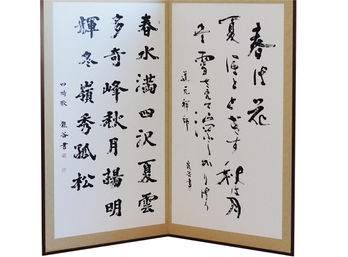 春は花
夏ほとゝぎす 秋は月
冬雪さえて
かりけり
道元禅師
谷書
春水満四沢夏雲
多奇峰秋月揚明
輝冬嶺秀孤松
四時歌 谷書